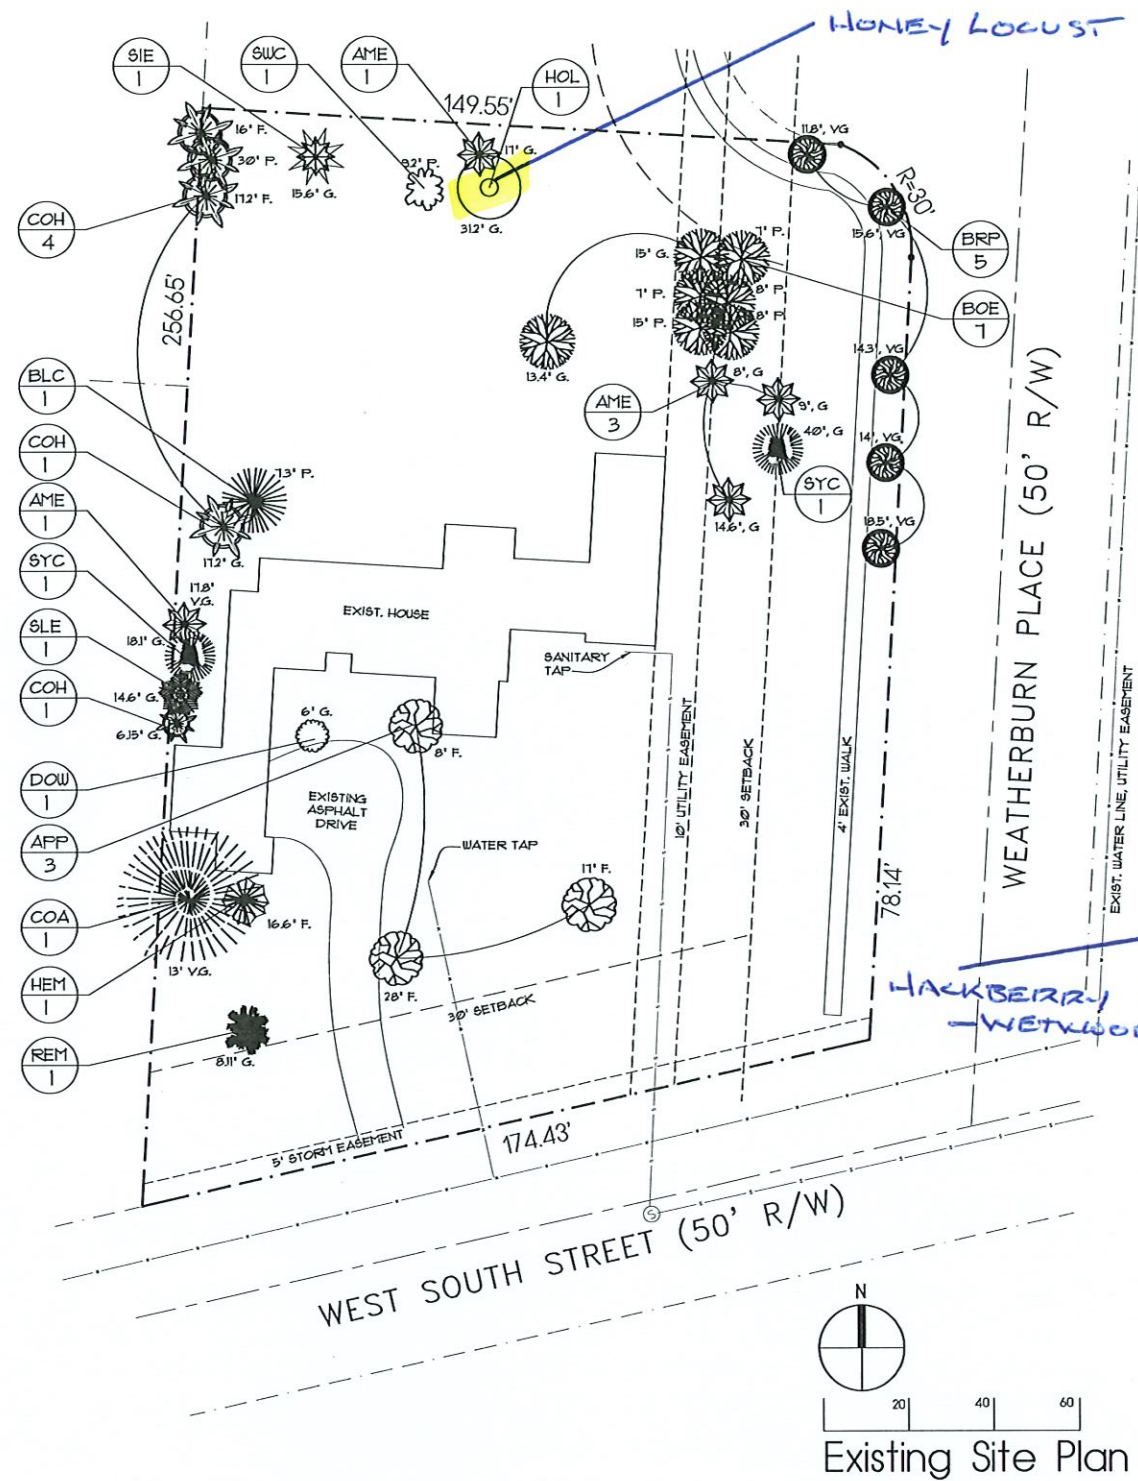 HONEY LOCUST
SIE
1
SWC
1
AME
1
HOL
1
149.55'
16' F.
30' P.
15.6' G.
17.2' F.
17' G.
31.2' G.
11.8', VG
R=30'
15.6', VG
COH
4
BRP
5
BOE
7
256.65'
15' G.
7' P.
7' P.
8' P.
15' P.
8' P.
13.4' G.
8', G
9', G
40', G
14.6', G
14.3', VG
14', VG
18.5', VG
AME
3
SYC
1
BLC
1
COH
1
AME
1
SYC
1
SLE
1
COH
1
DOW
1
APP
3
COA
1
HEM
1
REM
1
7.3' P.
17.2' G.
17.8'
V.G.
18.1' G.
14.6' G.
6.15' G.
EXIST. HOUSE
SANITARY
TAP
6' G.
8' F.
EXISTING
ASPHALT
DRIVE
WATER TAP
17' F.
16.6' F.
13' V.G.
28' F.
30' SETBACK
8.11' G.
10' UTILITY EASEMENT
30' SETBACK
4' EXIST. WALK
78.14'
WEATHERBURN PLACE (50' R/W)
EXIST. WATER LINE, UTILITY EASEMENT
HACKBERRY
5' STORM EASEMENT
174.43'
S
WEST SOUTH STREET (50' R/W)
N
20 40 60
Existing Site Plan